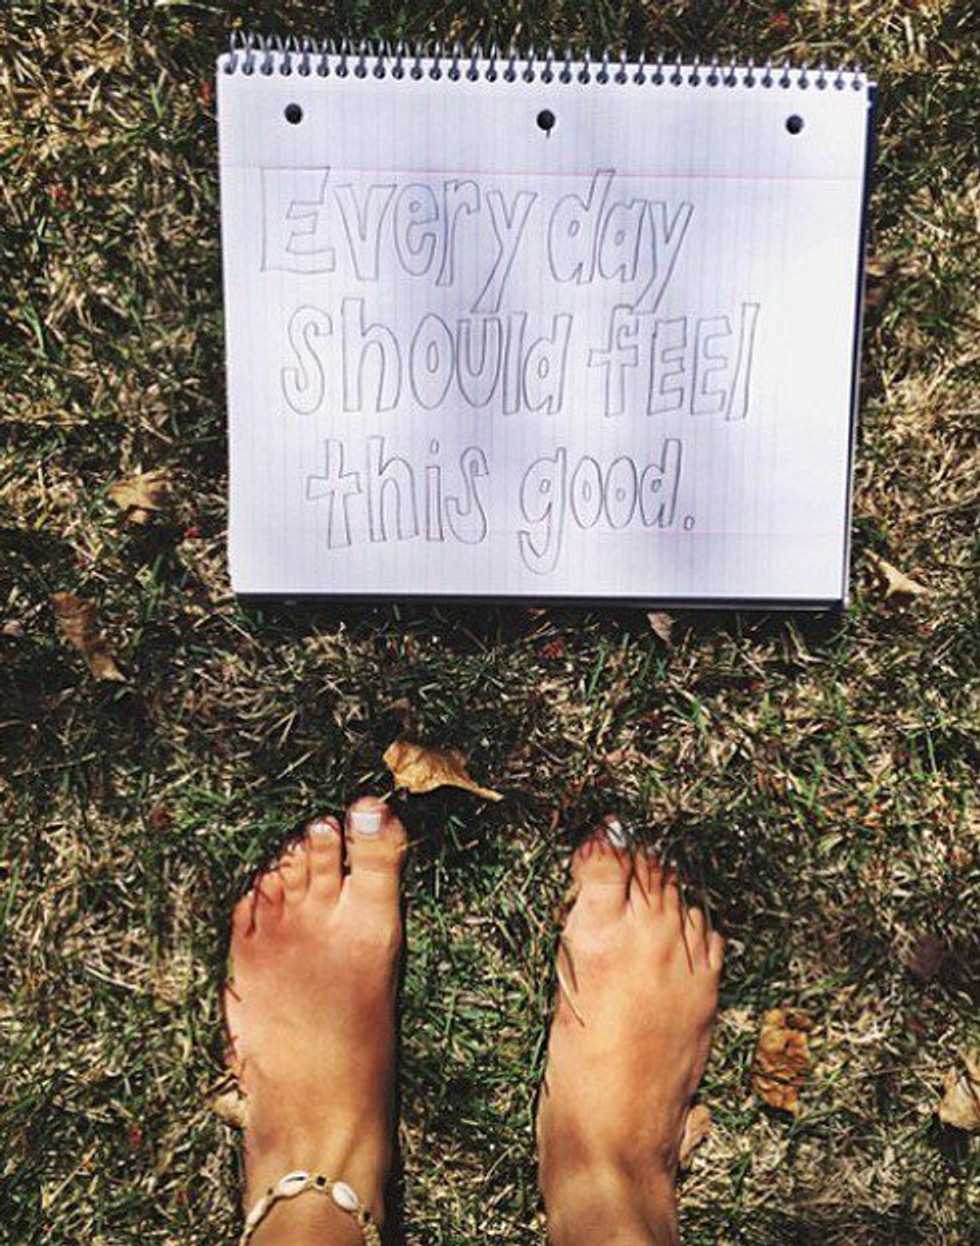 Every day
should fEEl
this good.